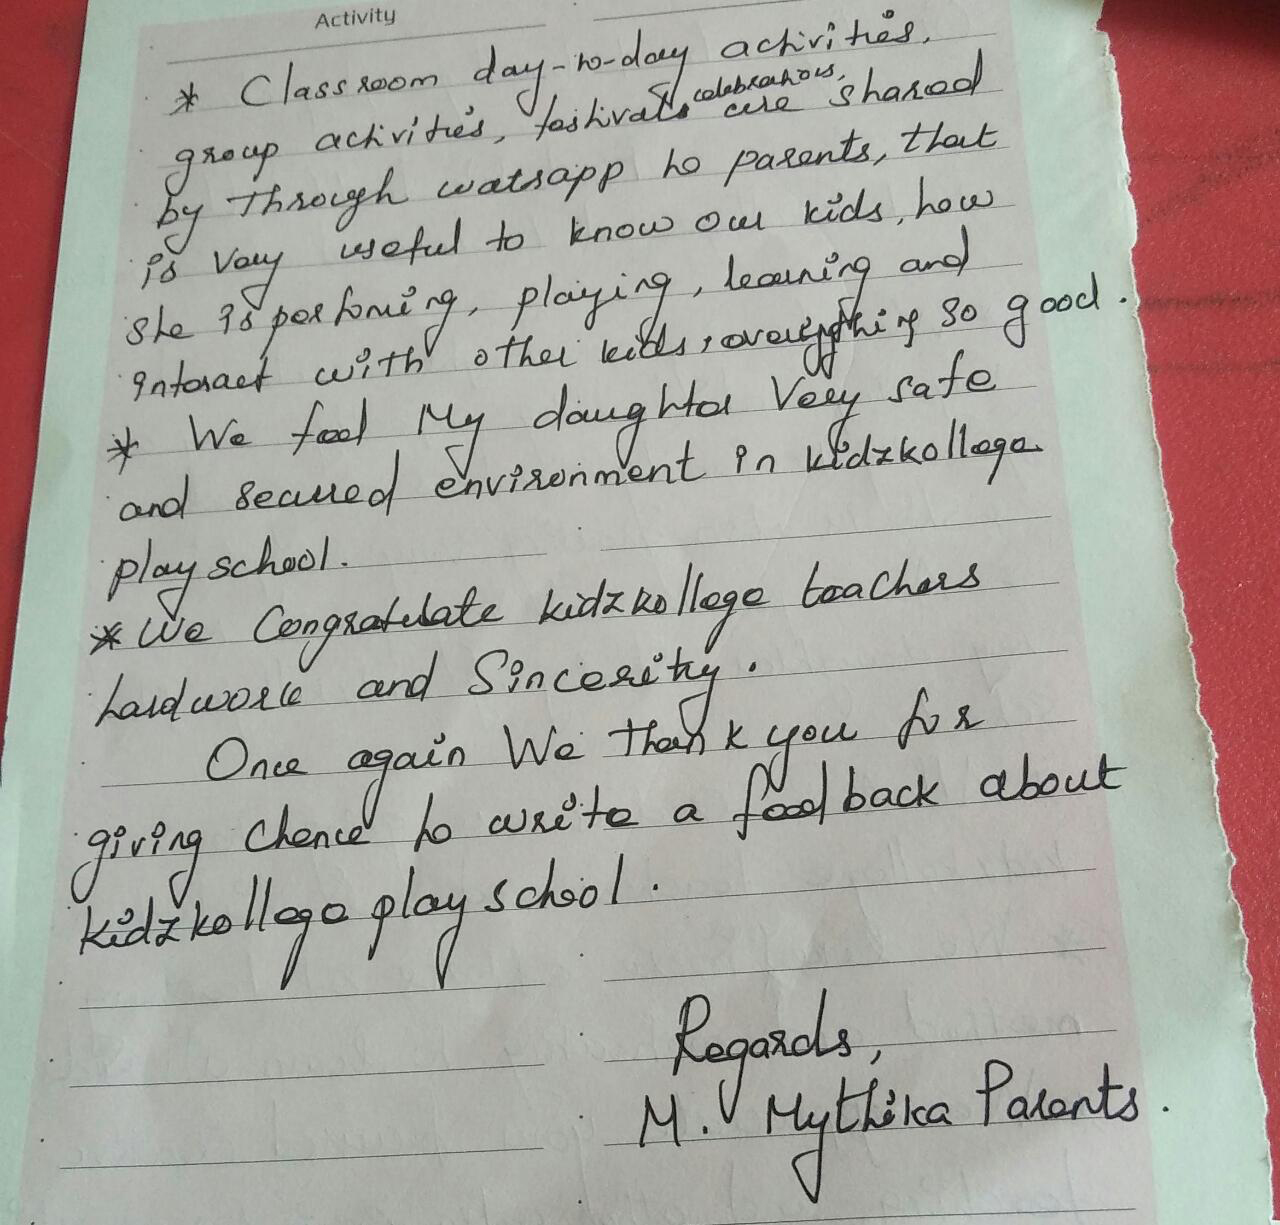 Activity
* Classroom day-to-day activities,
group activities, festivals celebrations, are shared
by through watsapp to parents, that
is very useful to know our kids, how
she is perfoming, playing, learning and
interact with other kids, everything so good.
* We feel My daughter Very safe
and secured environment in kidzkollege
play school.
* We Congratulate kidzkollege teachers
hardwork and Sincerity.
Once again We thank you for
giving chence to write a feedback about
kidzkollege play school.
Regards,
M. Mythika Parents.